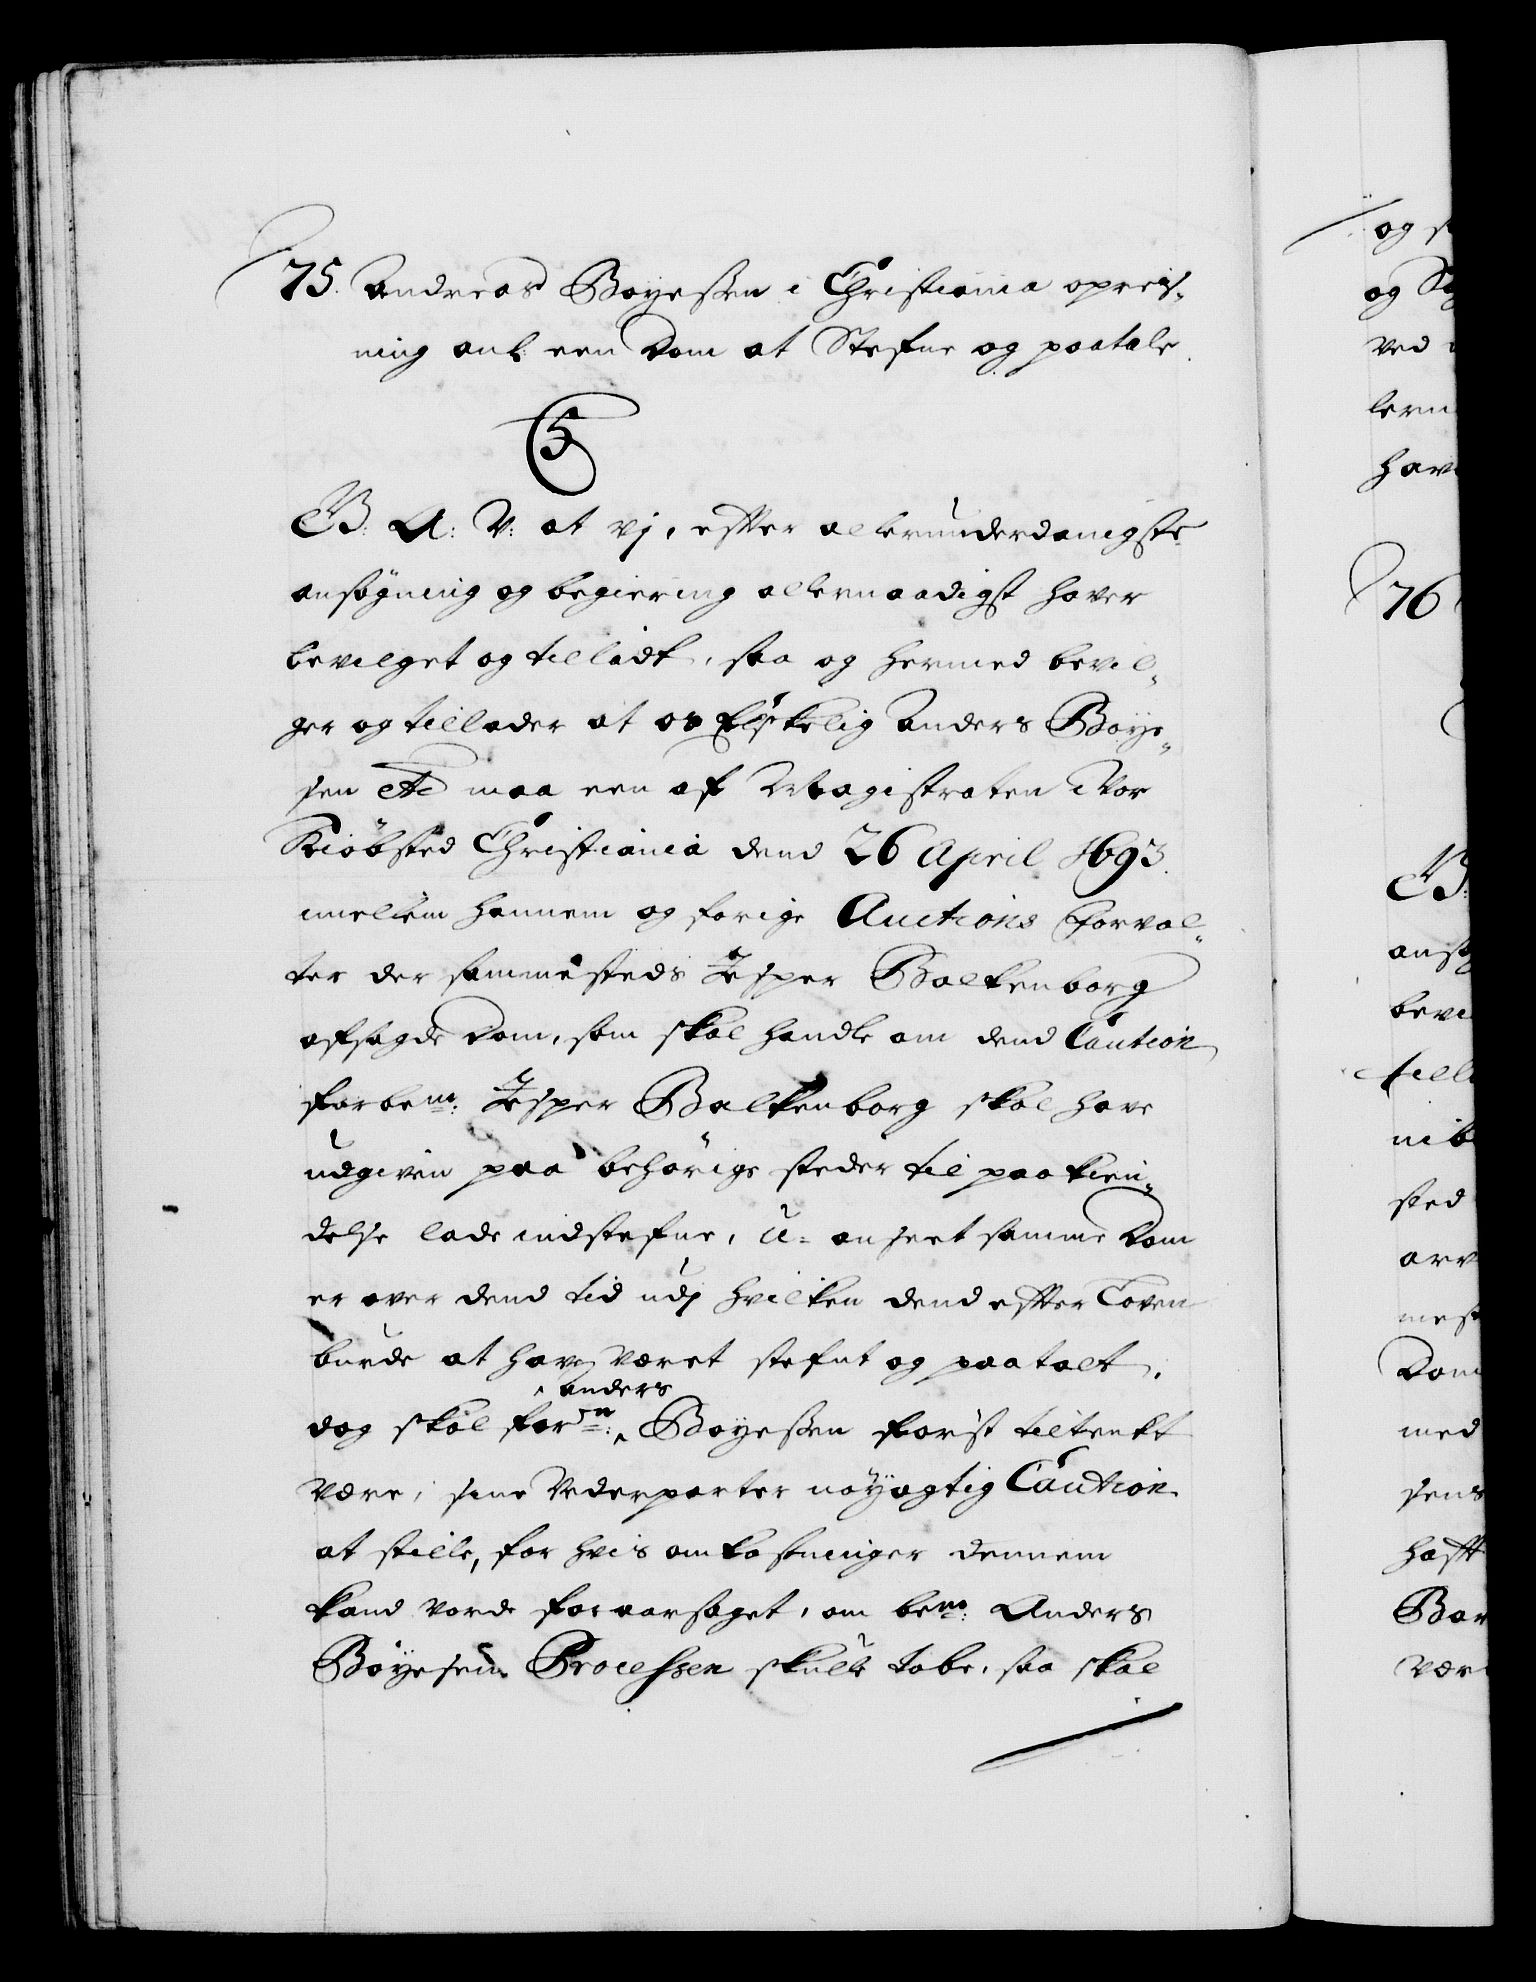 75. Andreas Boyessen i Christiania opreis-
ning anl: een Dom at Stefne og paatale.
C5
G. A: V: at vj, efter allerunderdanigste
ansøgning og begiering allernaadigst hafver
bevilget og tilladt, saa og hermed bevil-
ger og tillader at os Elskelig Anders Boye-
sen etc maa een af Magistraten i Vor
Kiøbsted Christiania dend 26 April 1693.
imellem hannem og forige Auctions Forval-
ter der sammesteds Jesper Balkenborg
afsagde Dom, som skal handle om dend Caution
forbem: Jesper Balkenborg skal have
udgiven paa behørige steder til paakien-
delse lade indstefne, U-anseet samme Dom
er over dend tid udj hvilken dend efter Loven
burde at have været stefnt og paatalt,
dog skal forn: Anders Boyessen først tiltenkt
være, sine Vederparter nøyagtig Caution
at stille, for hvis omkostninger dennem
kand vorde foraarsaget, om bem: Anders
Boyesen Processen skulle tabe, saa skal
og s
og S
ved
lern
hav
76
G:
ansø
bevi
till
nib
sted
arv
mest
Dom
med
sens
hafft
Bor
vær